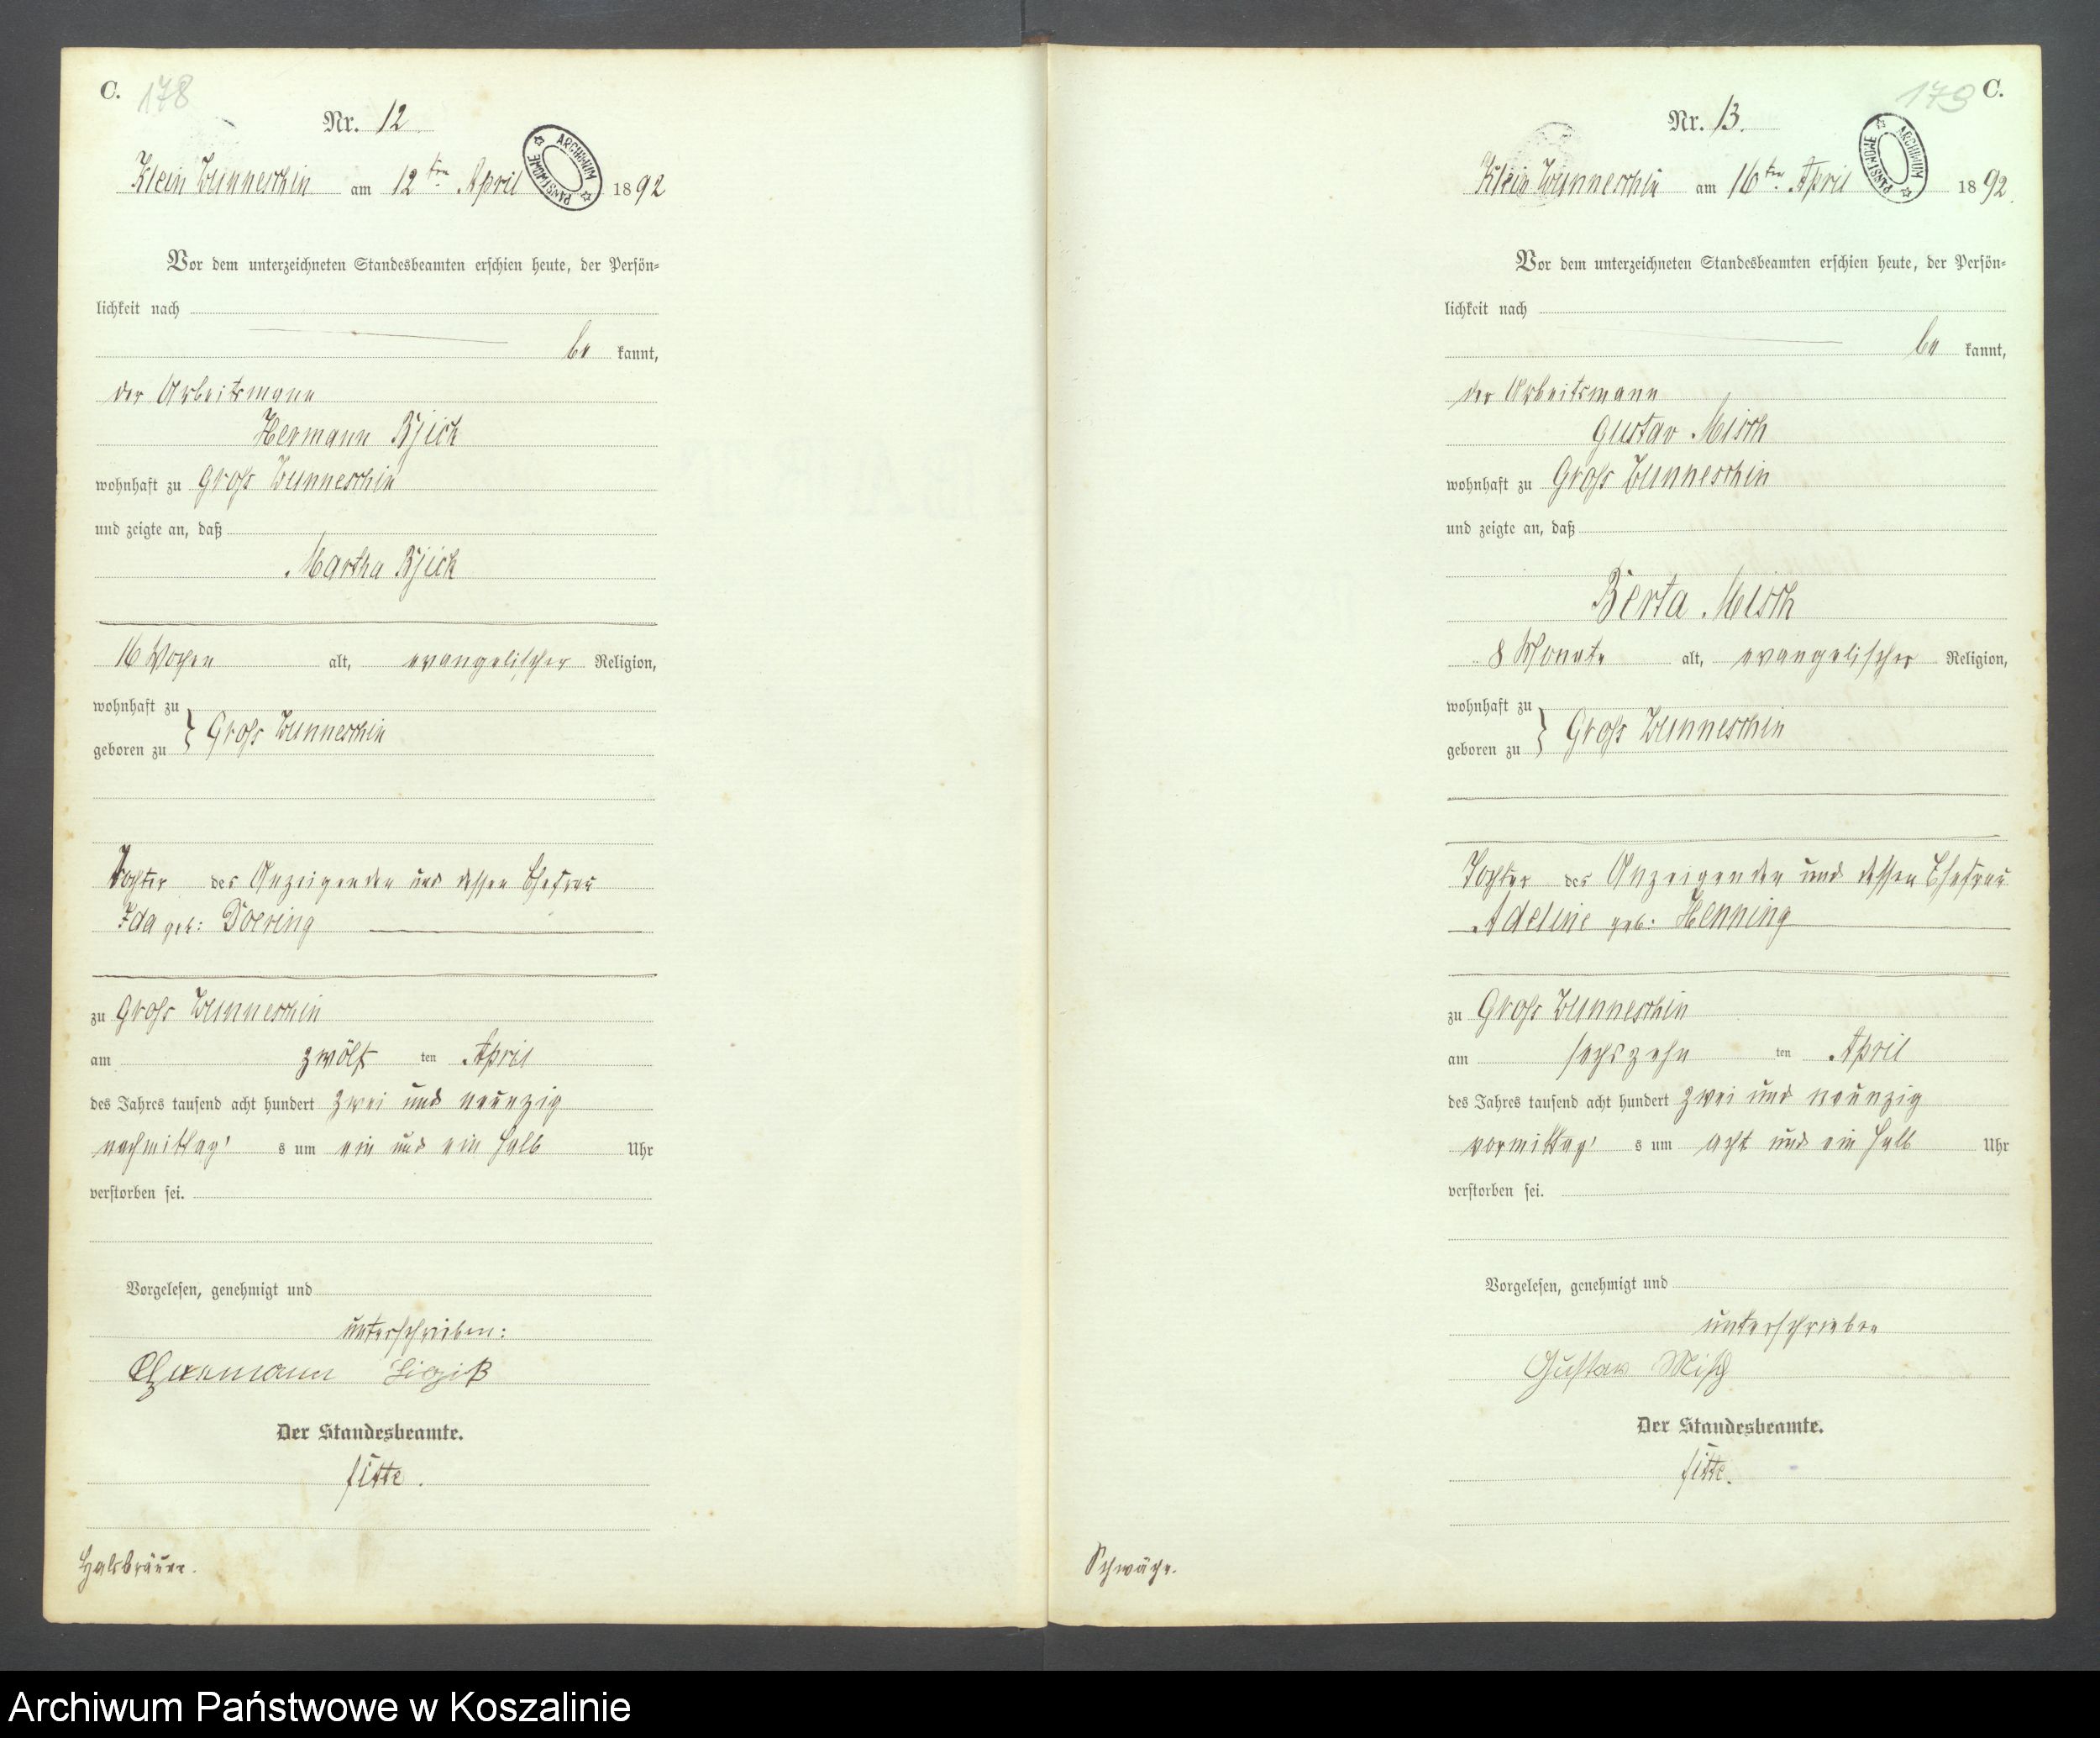 C. 178
Nr. 12
Klein Wunneschin am 12ten April 1892
ARCHIWUM PAŃSTWOWE
Vor dem unterzeichneten Standesbeamten erschien heute, der Persön-
lichkeit nach
be kannt,
der Arbeitsmann
Hermann
wohnhaft zu Groß Wunneschin
und zeigte an, daß
Martha
16 Wochen alt, evangelischer Religion,
wohnhaft zu
geboren zu } Groß Wunneschin
Tochter des Anzeigenden und dessen Ehefrau
Ida geb: Doering
zu Groß Wunneschin
am zwölf ten April
des Jahres tausend acht hundert zwei und neunzig
nachmittag's um ein und ein halb Uhr
verstorben sei.
Vorgelesen, genehmigt und
unterschrieben:
Der Standesbeamte.
Halsbräune.
179 C.
Nr. 13.
Klein Wunneschin am 16ten April 1892.
ARCHIWUM PAŃSTWOWE
Vor dem unterzeichneten Standesbeamten erschien heute, der Persön-
lichkeit nach
be kannt,
der Arbeitsmann
Gustav Misch
wohnhaft zu Groß Wunneschin
und zeigte an, daß
Berta Misch
8 Monate alt, evangelischer Religion,
wohnhaft zu
geboren zu } Groß Wunneschin
Tochter des Anzeigenden und dessen Ehefrau
Adeline geb: Henning
zu Groß Wunneschin
am sechszehn ten April
des Jahres tausend acht hundert zwei und neunzig
vormittag's um acht und ein halb Uhr
verstorben sei.
Vorgelesen, genehmigt und
unterschrieben
Gustav Misch
Der Standesbeamte.
Schwäche.
Archiwum Państwowe w Koszalinie